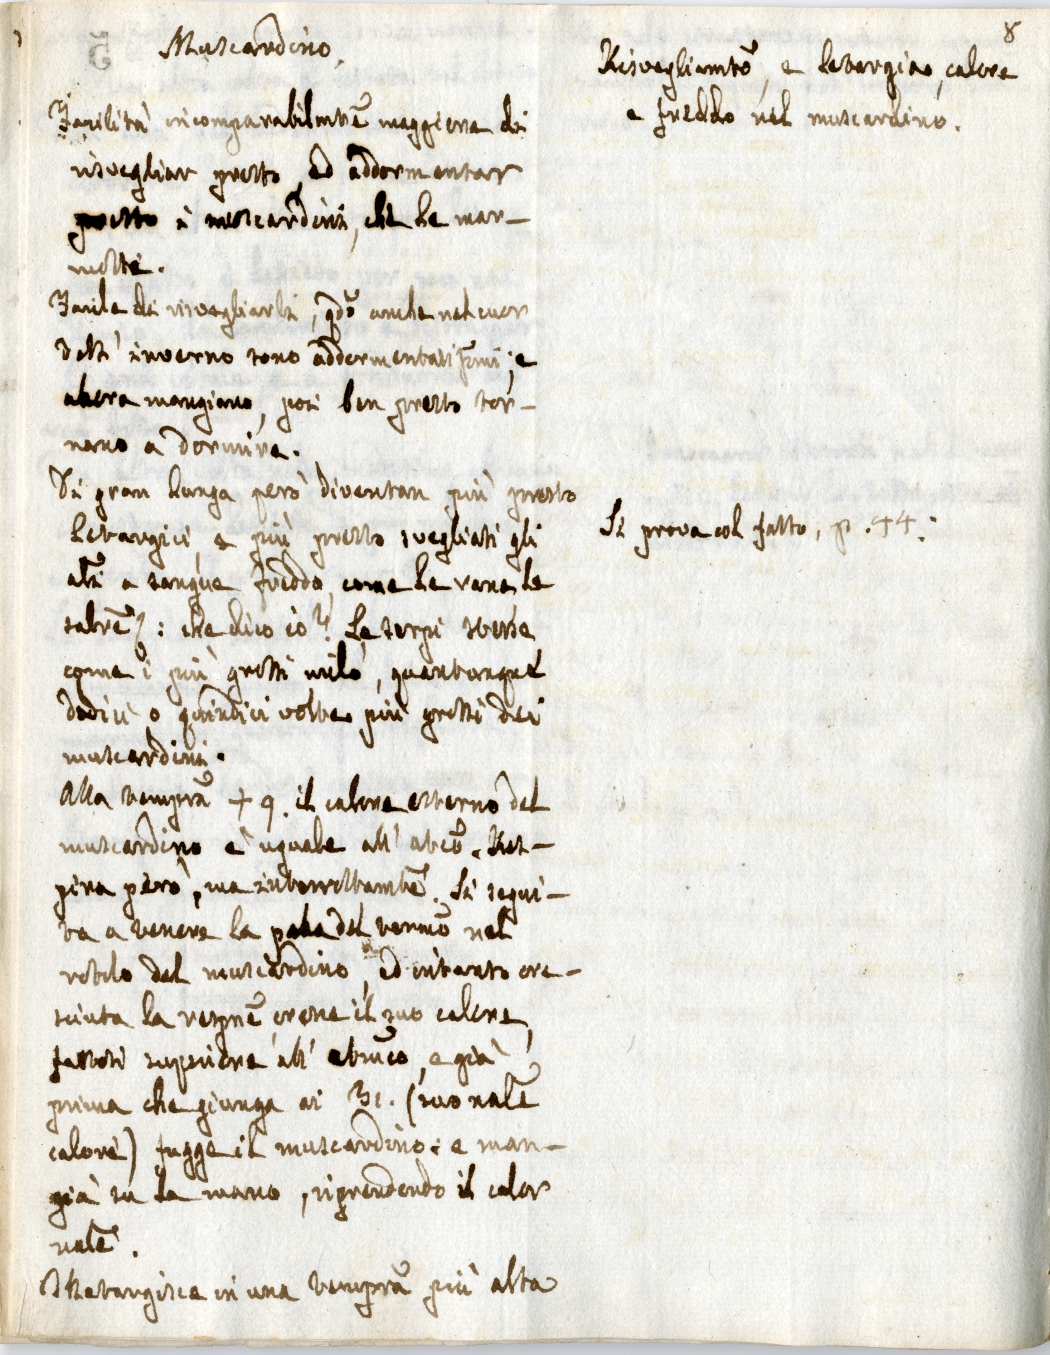 8
Muscardino.
Risvegliamto, e letargia, calore
e freddo nel muscardino.
Facilità incomparabilmte maggiore di
risvegliar presto, ed addormentar
presto i muscardini, che le mar-
motte.
Facile di risvegliarli, qdo anche nel cuor
dell' inverno sono addormentatissmi; e
allora mangiano, poi ben presto tor-
nano a dormire.
Di gran lunga però diventan più presto
letargici, e più presto svegliati gli
alti a sangue freddo, come le rane, le
Si prova col fatto, p. 44.
salamre: che dico io? Le serpi stesse
come i più grossi, quantunque
dodici o quindici volte più grossi dei
muscardini.
Alla tempra + 9. il calore esterno del
muscardino è uguale all' atco. Res-
pira però, ma interrottamte. Si segui-
ta a tenere la palla del termo nel
rotolo del muscardino, ed intanto cre-
sciuta la respne cresce il suo calore,
fattosi superiore all' atmco, e già
prima che giunga ai 31. (suo nale
calore) fugge il muscardino: e man-
gia su la mano, riprendendo il calor
nale.
Iletargisce in una tempra più alta